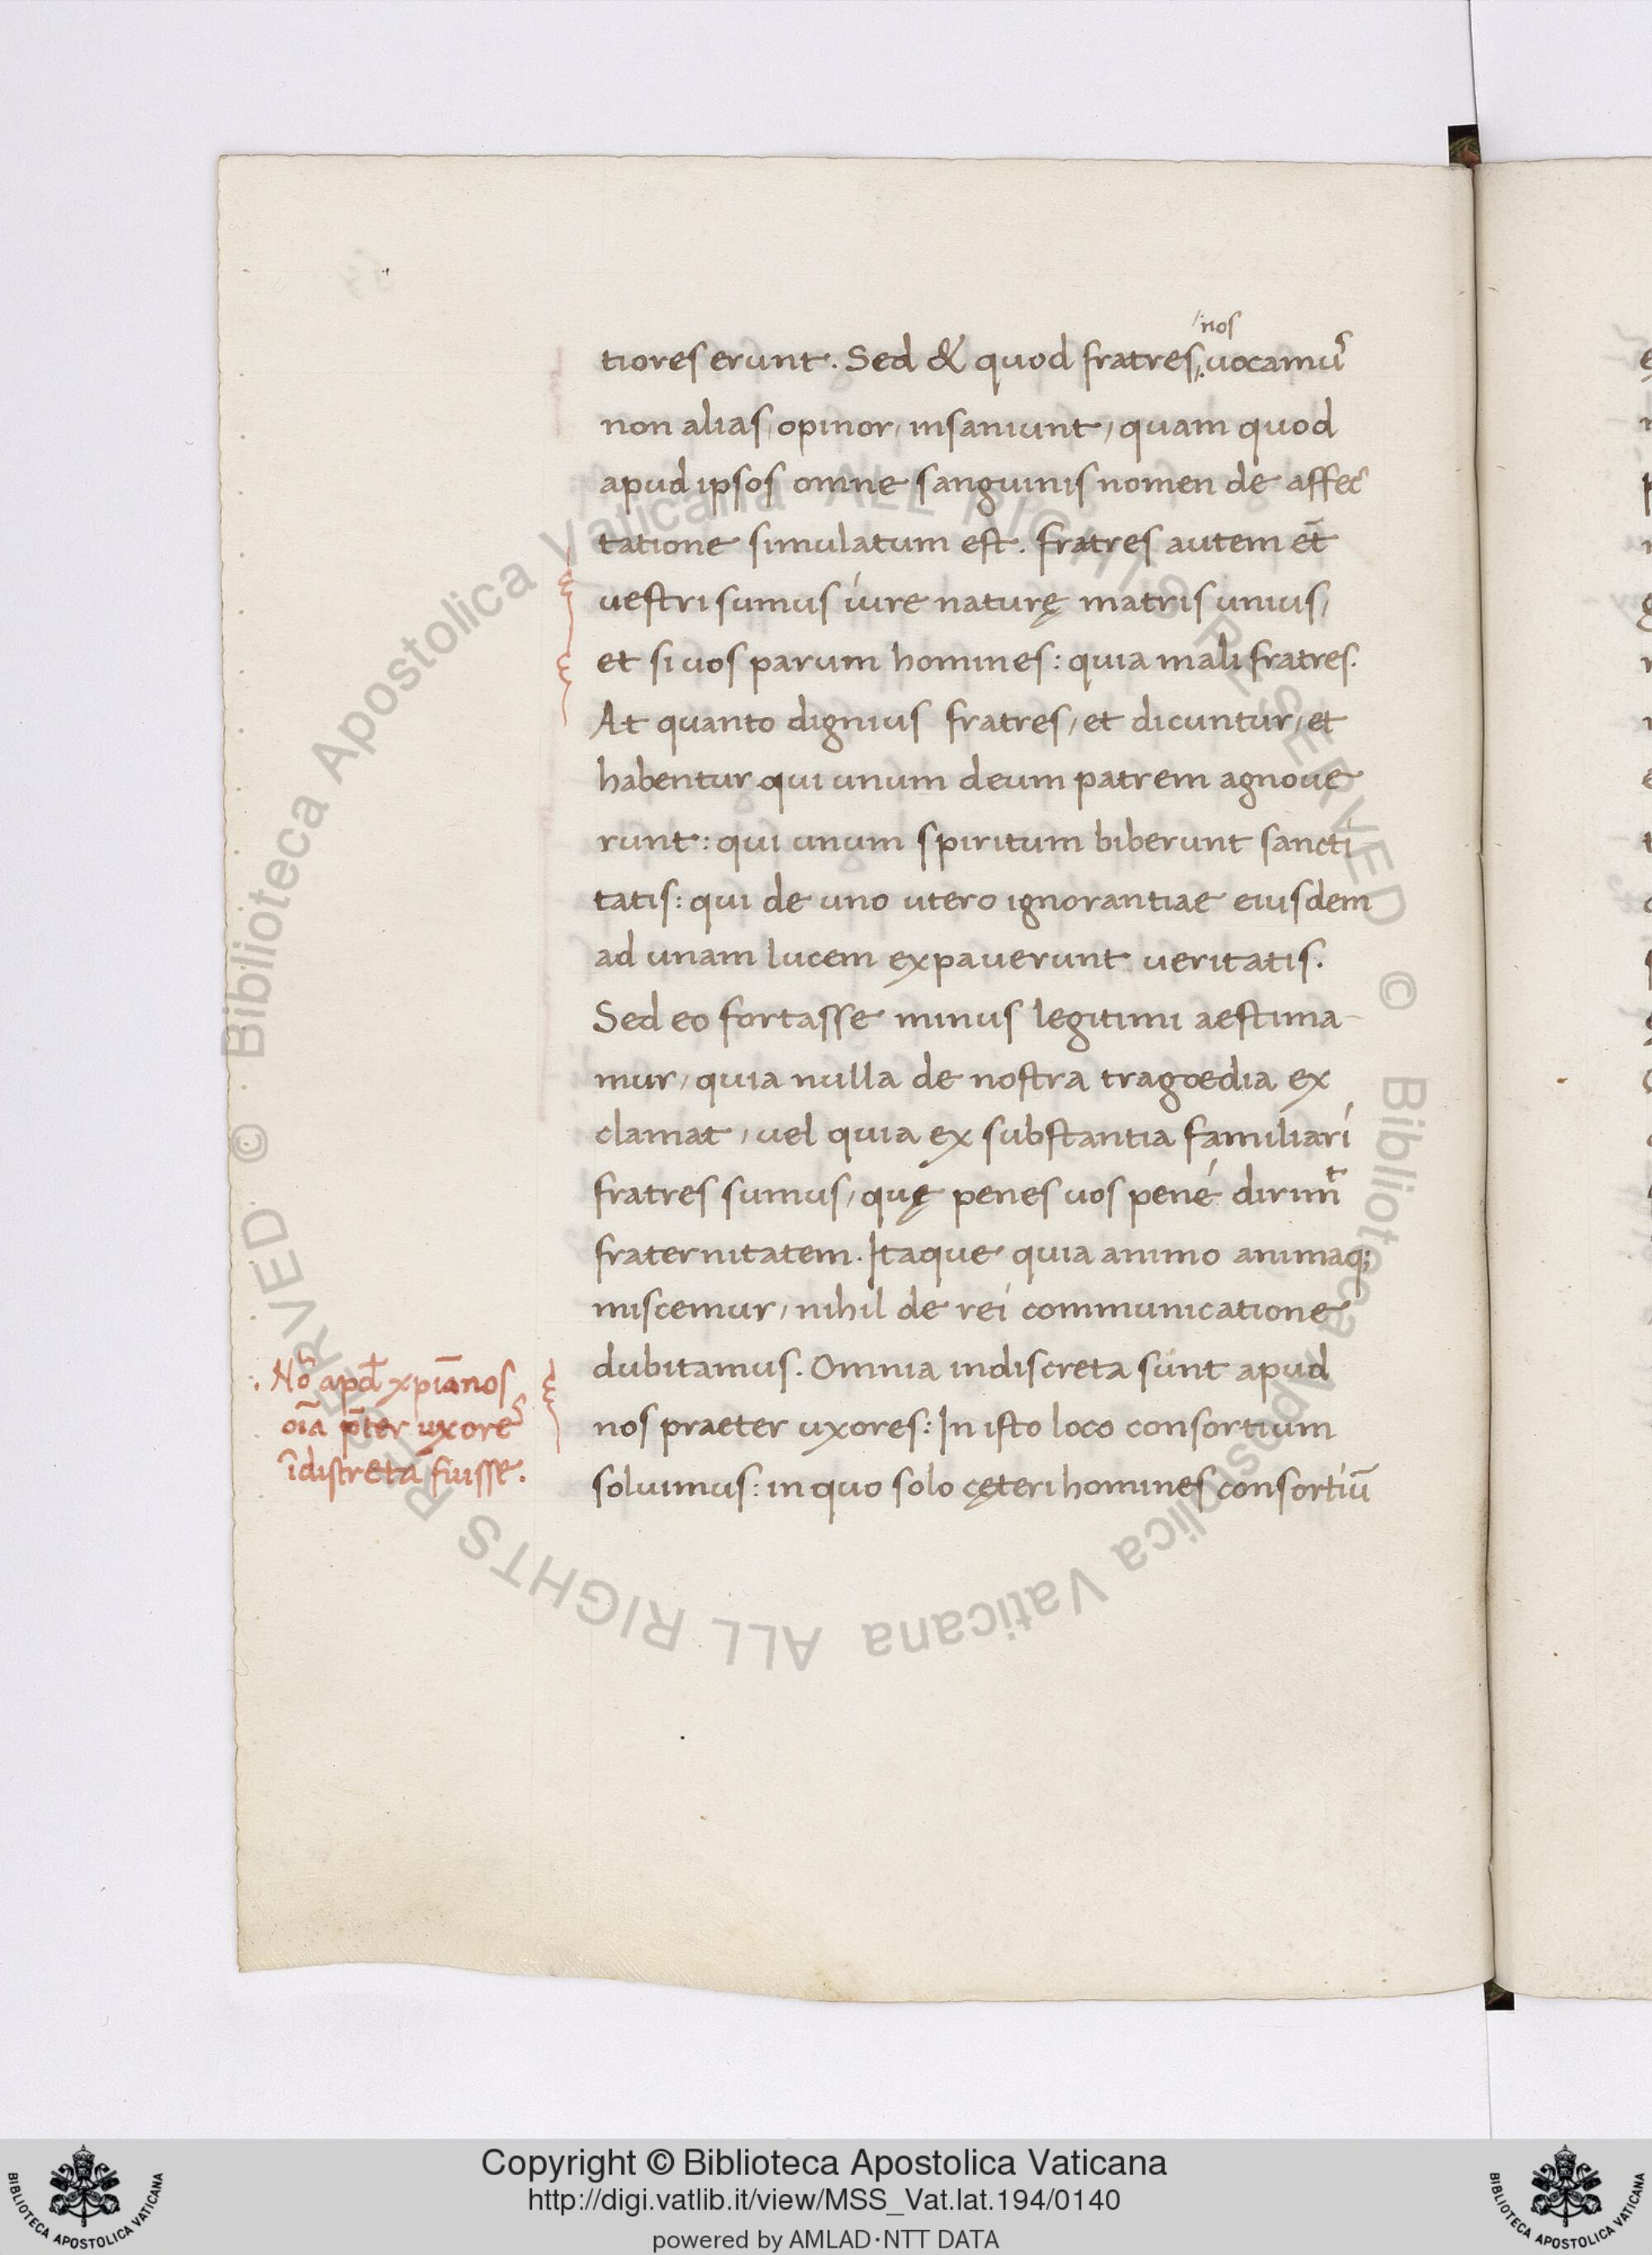 nos
tiores erunt. Sed & quod fratres, uocamuſ
non alias opinor, insaniunt, quam quod
apud ipsos omne sanguinis nomen de affec
tatione simulatum est. fratres autem et̄
uestri sumus iúre naturę matris unius,
et si uos parum homines: quia mali fratres.
At quanto dignius fratres, et dicuntur, et
habentur qui unum deum patrem agnoue
runt: qui unum spiritum biberunt sancti
tatis: qui de uno utero ignorantiae eiusdem
ad unam lucem expauerunt ueritatis.
Sed eo fortasse minus legitimi aestima-
mur, quia nulla de nostra tragoedia ex
clamat, uel quia ex substantia familiari
fratres sumus, quę penes uos pené dirimt̄
fraternitatem. Itaque quia animo animaq;
miscemur, nihil de rei communicatione
dubitamus. Omnia indiscreta sunt apud
nos praeter uxores: In isto loco consortium
soluimus: in quo solo cęteri homines consortiū
. No apd xp̄ianos
oīa pt̄er uxores
īdiscreta fuisse.
© Biblioteca Apostolica Vaticana ALL RIGHTS RESERVED © Biblioteca Apostolica Vaticana ALL RIGHTS RESERVED
Copyright © Biblioteca Apostolica Vaticana
http://digi.vatlib.it/view/MSS_Vat.lat.194/0140
powered by AMLAD·NTT DATA
BIBLIOTECA APOSTOLICA VATICANA
BIBLIOTECA APOSTOLICA VATICANA